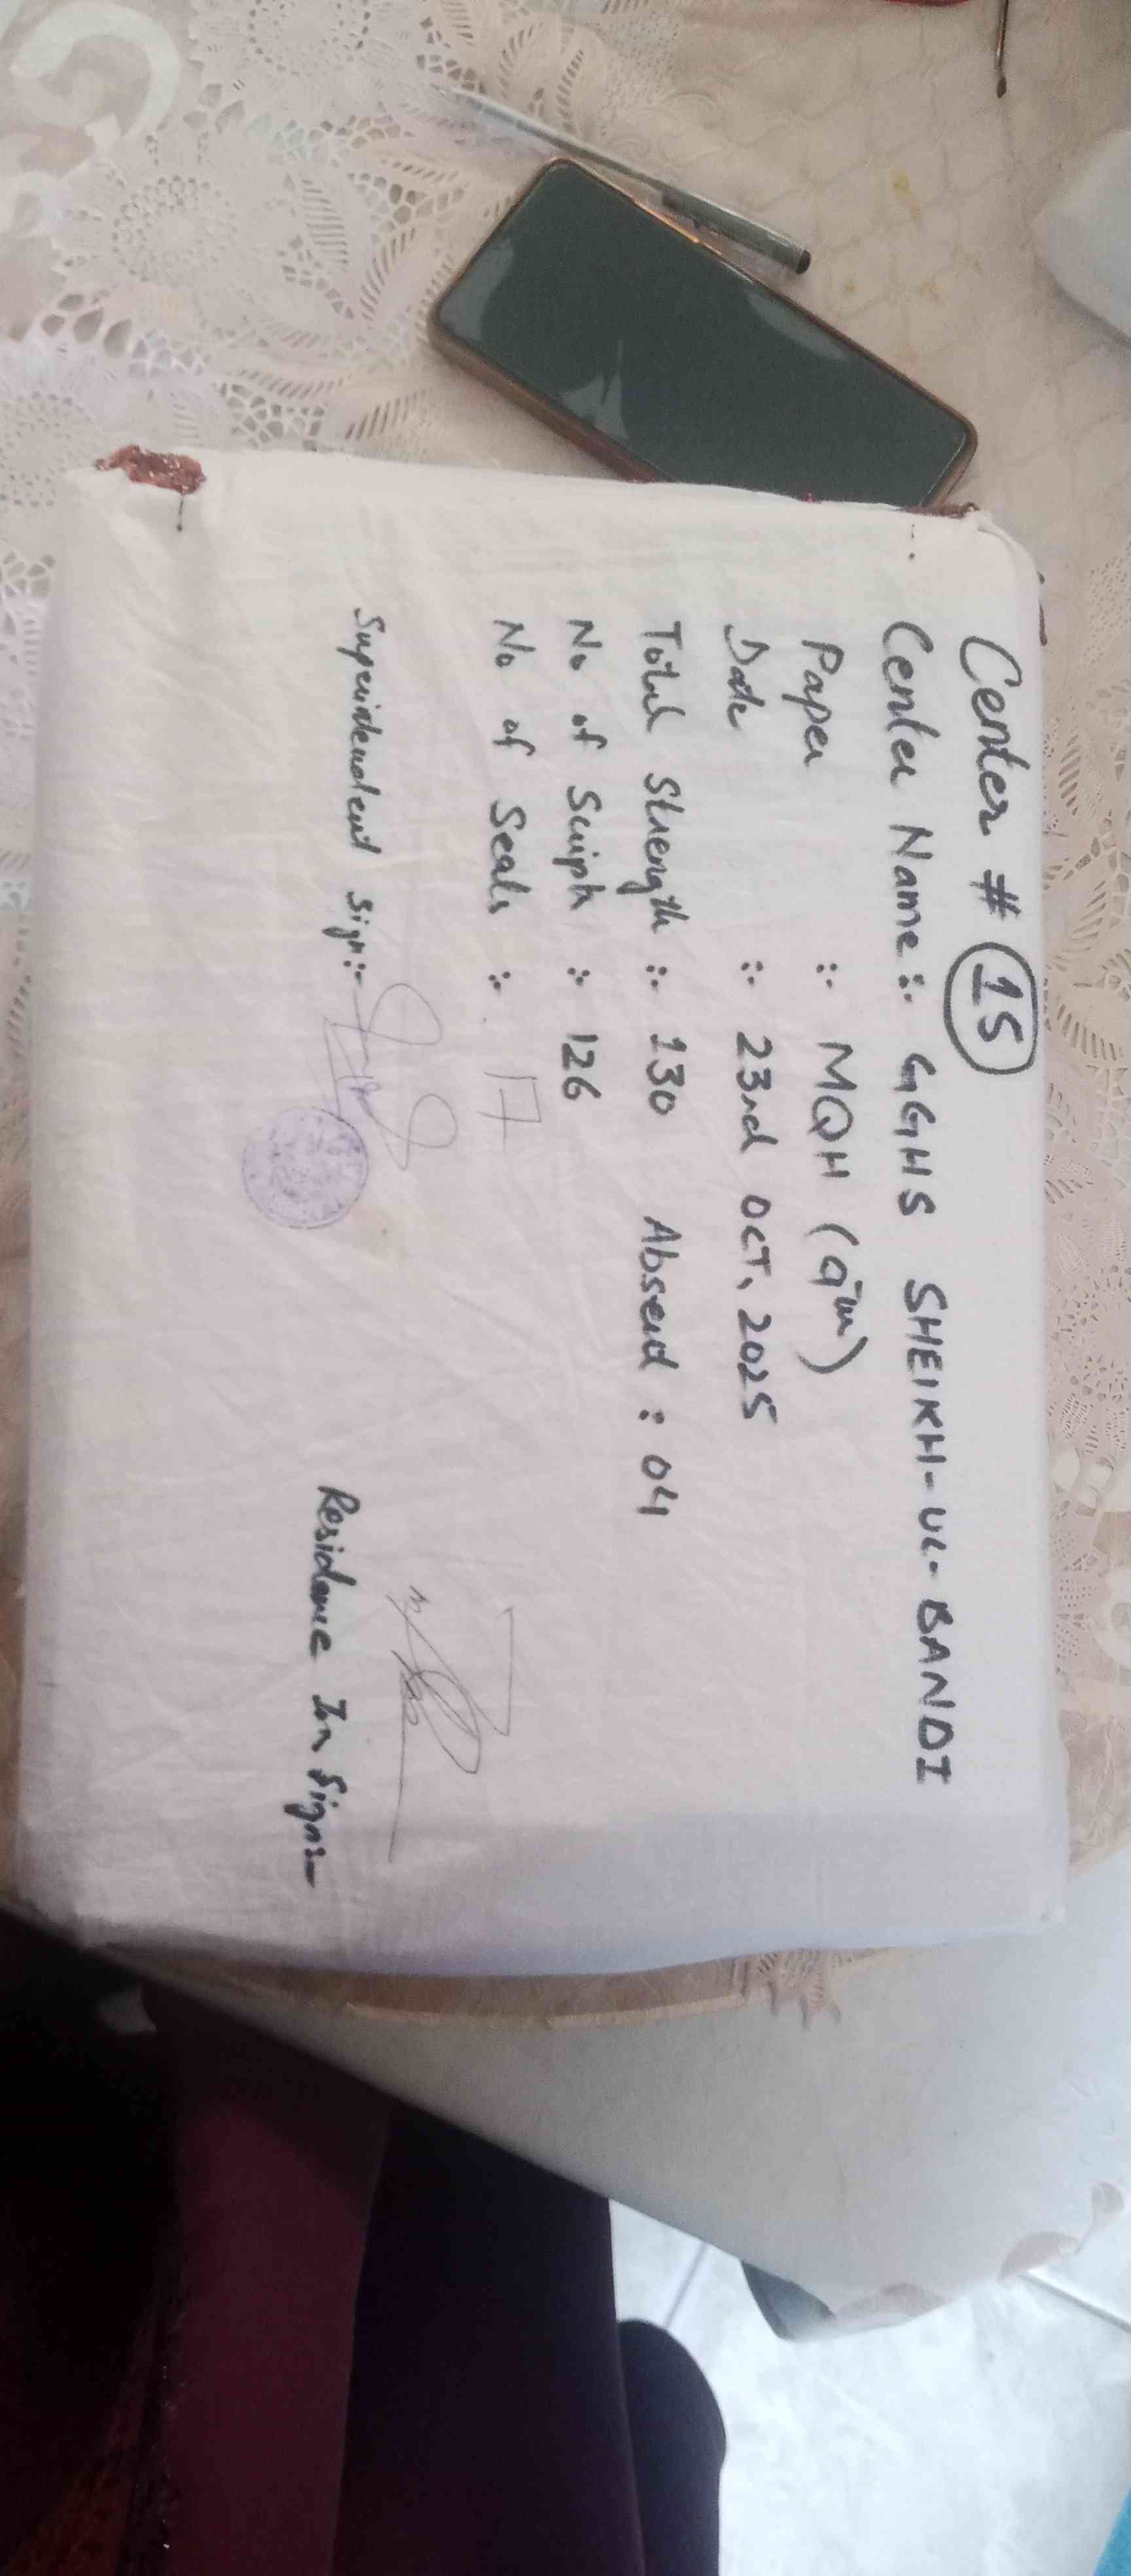 Center # 15
Center Name :- GGHS SHEIKH-UL-BANDI
Paper :- MQH (9th)
Date :- 23rd OCT, 2025
Total Strength :- 130 Absend : 04
No of Scripts :- 126
No of Seals :- 17
Superidendent Sign:-
Residance In Sign:-